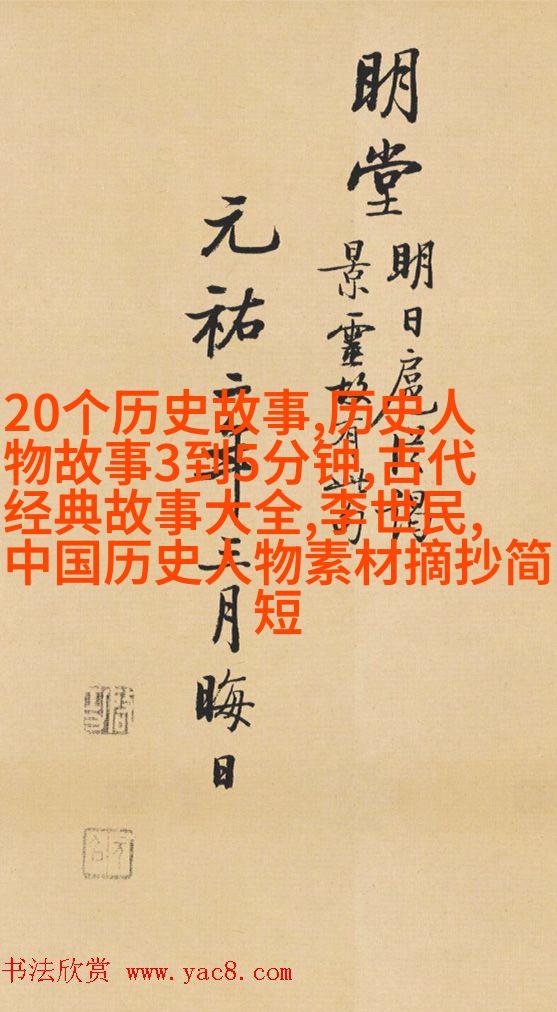 明堂
明日扈從謁
景靈故有此句
元祐年三月晦日
20个历史故事,历史人
物故事3到5分钟,古代
经典故事大全,李世民,
中国历史人物素材摘抄简
短
书法欣赏 www.yac8.com